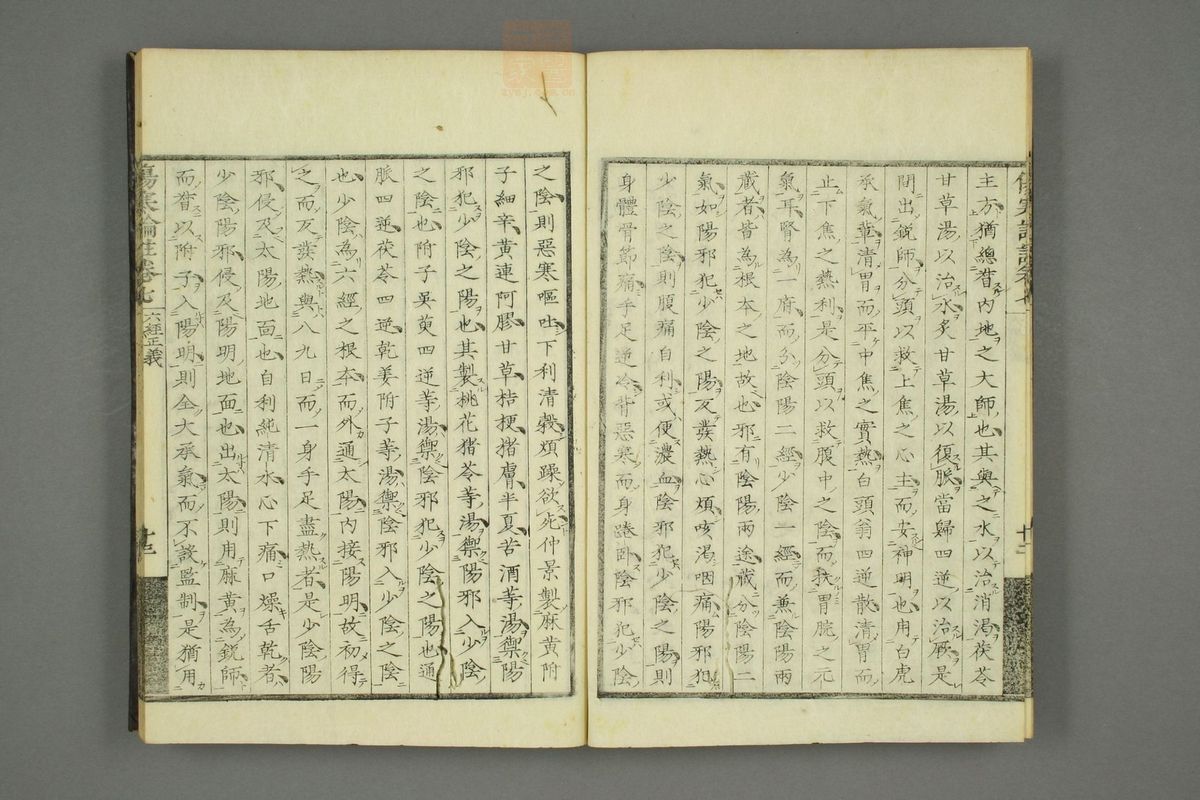 主方猶總督內地之大師也其與之水以治消渴茯苓
甘草湯以治水炙甘草湯以復脈當歸四逆以治厥是
間出銳師分頭以救上焦之心主而安神明也用白虎
承氣草清胃而平中焦之實熱白頭翁四逆散清胃而
止下焦之熱利是分頭以救腹中之陰而扶胃脘之元
氣耳腎為一府而分陰陽二經少陰一經而兼陰陽兩
藏者皆為根本之地故也邪有陰陽兩途藏分陰陽二
氣如陽邪犯少陰之陽反發熱心煩咳渴咽痛陽邪犯
少陰之陰則腹痛自利或便濃血陰邪犯少陰之陽則
身體骨節痛手足逆冷背惡寒而身踡臥陰邪犯少陰
之陰則惡寒嘔吐下利清穀煩躁欲死仲景製麻黃附
子細辛黃連阿膠甘草桔梗猪膚半夏苦酒等湯禦陽
邪犯少陰之陽也其製桃花猪苓等湯禦陽邪入少陰
之陰也附子吳萸四逆等湯禦陰邪犯少陰之陽也通
脈四逆茯苓四逆乾姜附子等湯禦陰邪入少陰之陰
也少陰為六經之根本而外通太陽內接陽明故初得
之而反發熱與八九日而一身手足盡熱者是少陰陽
邪侵及太陽地面也自利純清水心下痛口燥舌乾者
少陰陽邪侵及陽明地面也出太陽則用麻黃為銳師
而督以附子入陽明則全大承氣而不設監制是猶用
傷寒論註卷七
六經正義
廿三
zysj.com.cn